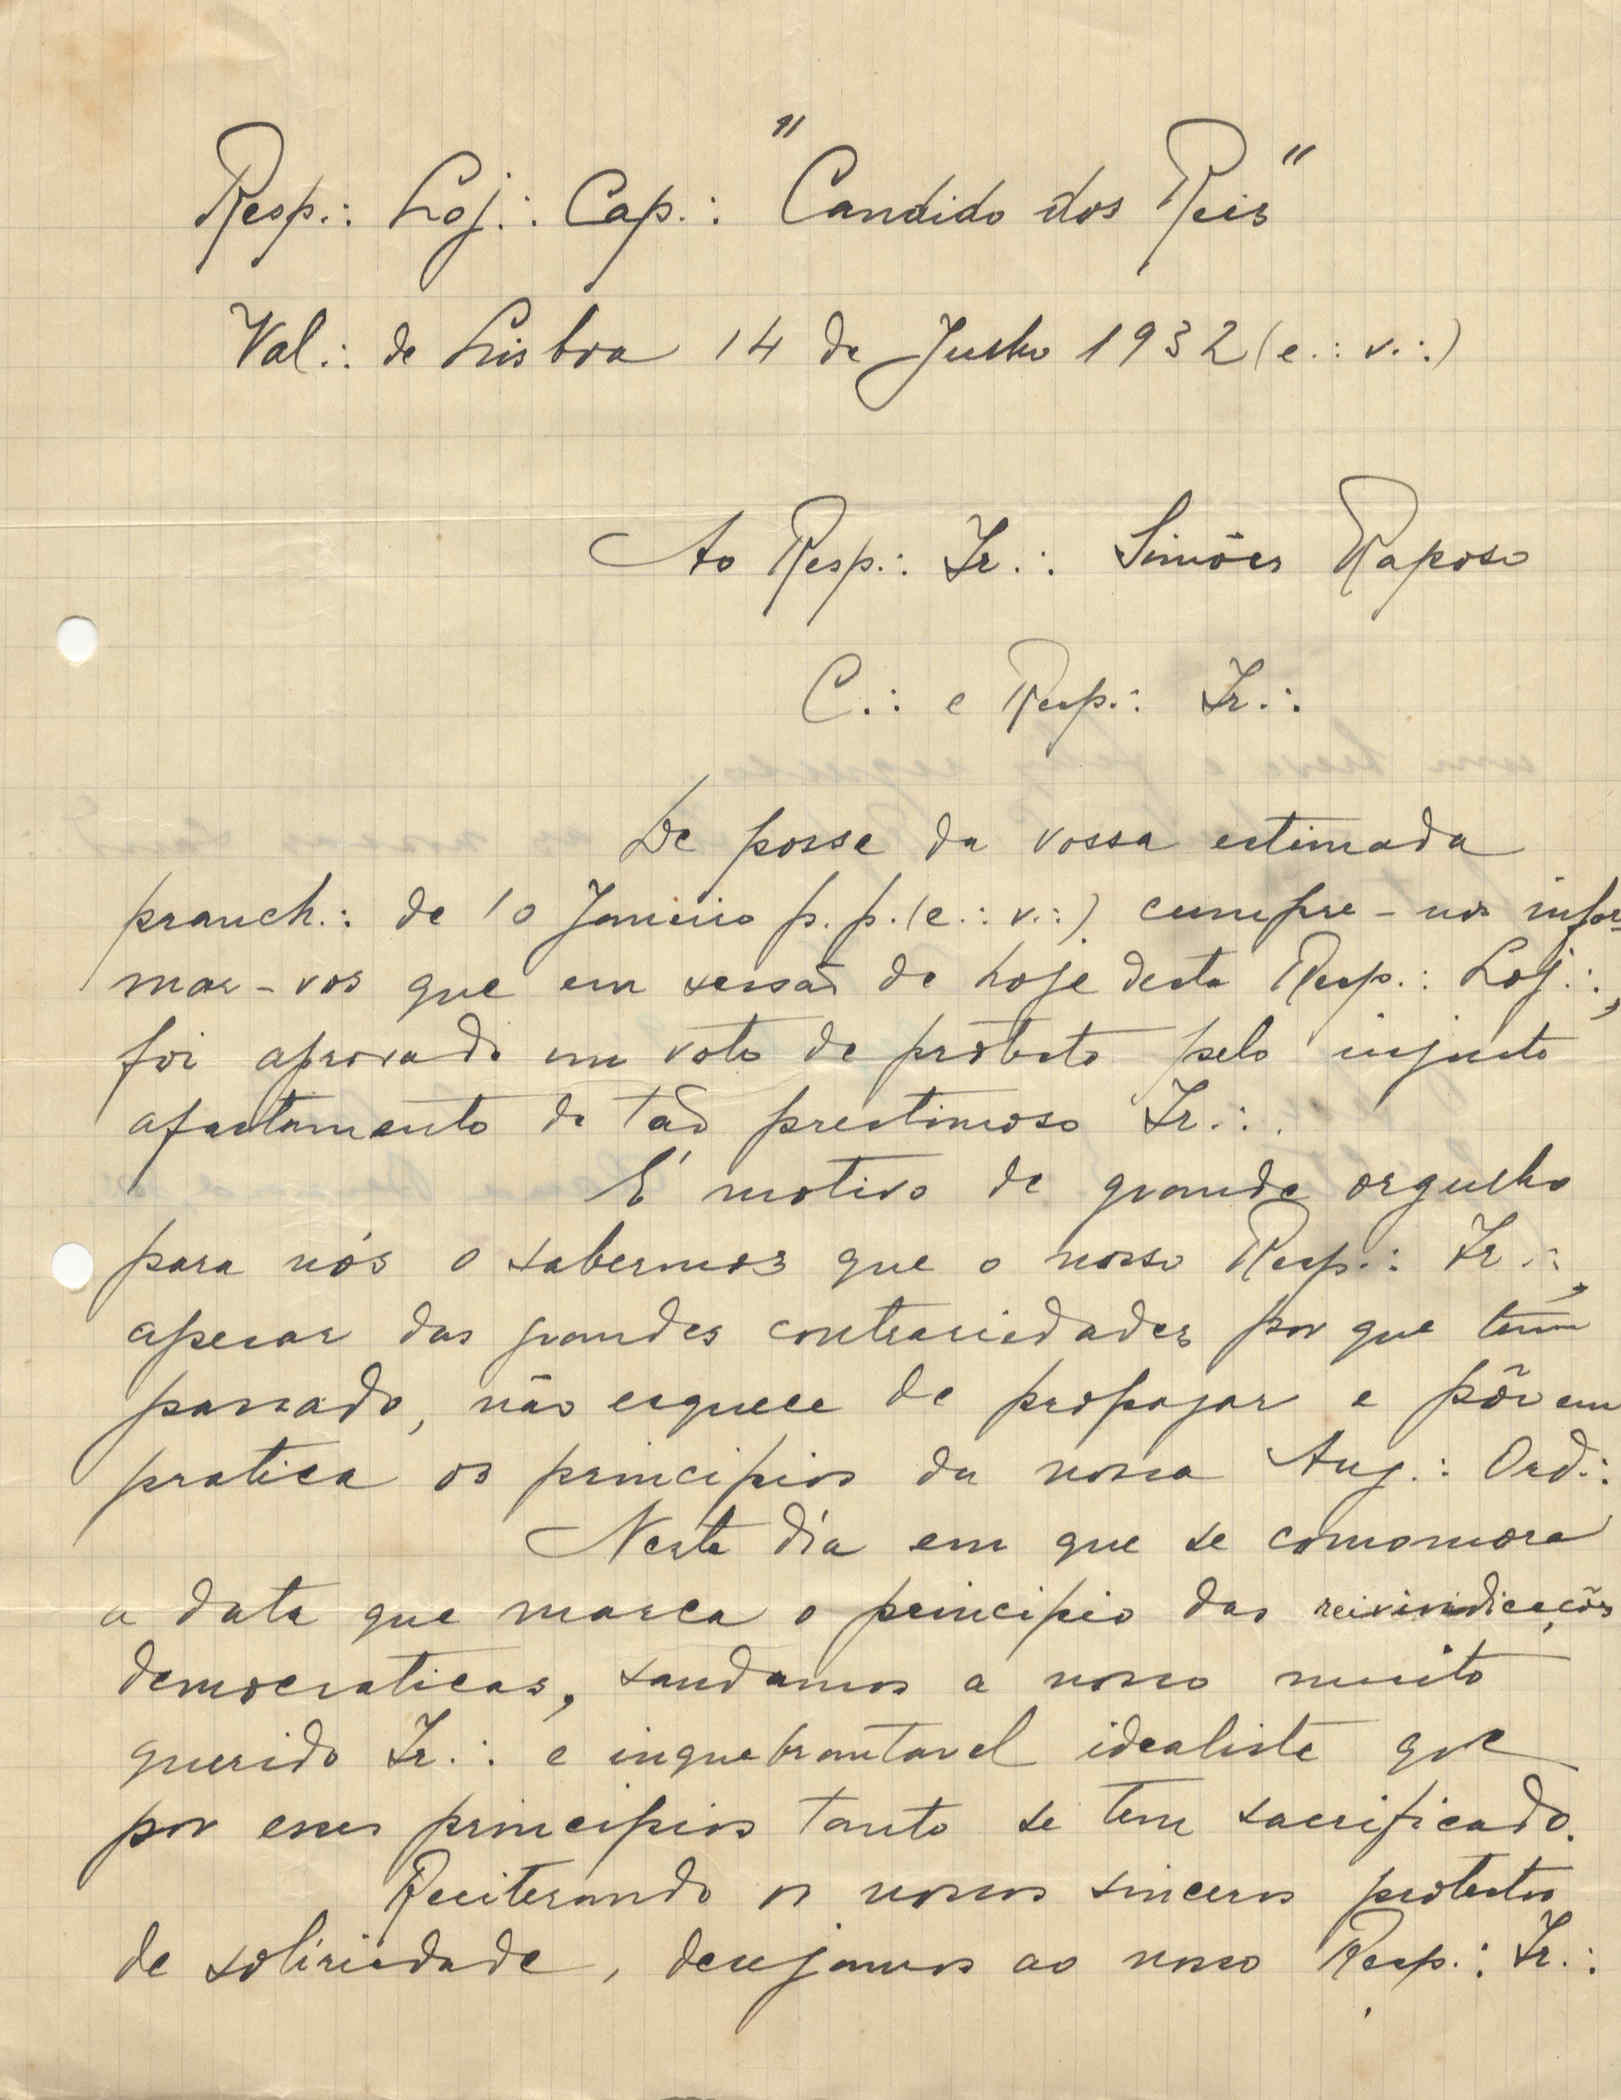 Resp.: Loj.: Cap.: "Candido dos Reis"
Val.: de Lisboa 14 de Julho 1932 (e.: v.:)
Ao Resp.: Ir.: Simões Raposo
C.: e Resp.: Ir.:
De posse da vossa estimada
pranch.: de 10 Janeiro p. p. (e.: v.:) cumpre-nos infor-
mar-vos que em sessão de hoje desta Resp.: Loj.:,
foi aprovado um voto de protesto pelo injusto
afastamento de tão prestimoso Ir.:.
É motivo de grande orgulho
para nós o sabermos que o nosso Resp.: Ir.:,
apesar das grandes contrariedades por que tem
passado, não esquece de propagar e pôr em
pratica os principios da nossa Aug.: Ord.:
Neste dia em que se comomora
a data que marca o principio das reivindicações
democraticas, saudamos a nosso muito
querido Ir.: e inquebrantavel idealista que
por esses principios tanto se tem sacrificado.
Reiterando os nossos sinceros protestos
de soliriedade, desejamos ao nosso Resp.: Ir.: